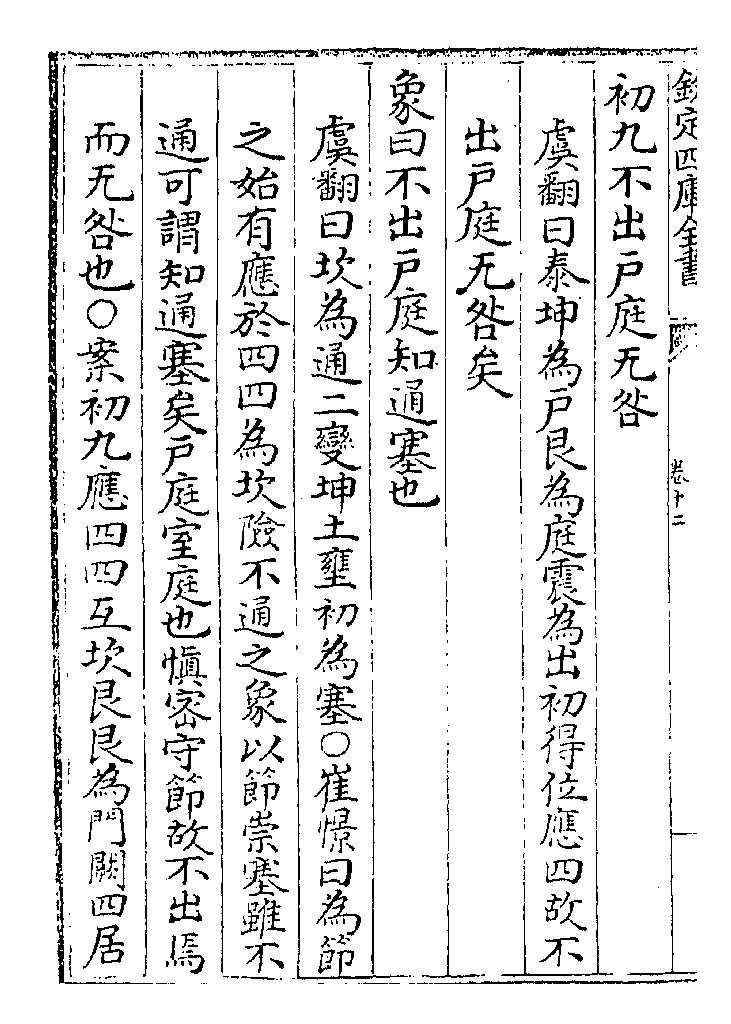 欽定四庫全書
卷十二
初九不出戸庭无咎
虞翻曰泰坤為戸艮為庭震為出初得位應四故不
出戸庭无咎矣
象曰不出戸庭知通塞也
虞翻曰坎為通二變坤土壅初為塞○崔憬曰為節
之始有應於四四為坎險不通之象以節崇塞雖不
通可謂知通塞矣戸庭室庭也慎宻守節故不出焉
而无咎也○案初九應四四互坎艮艮為門闕四居